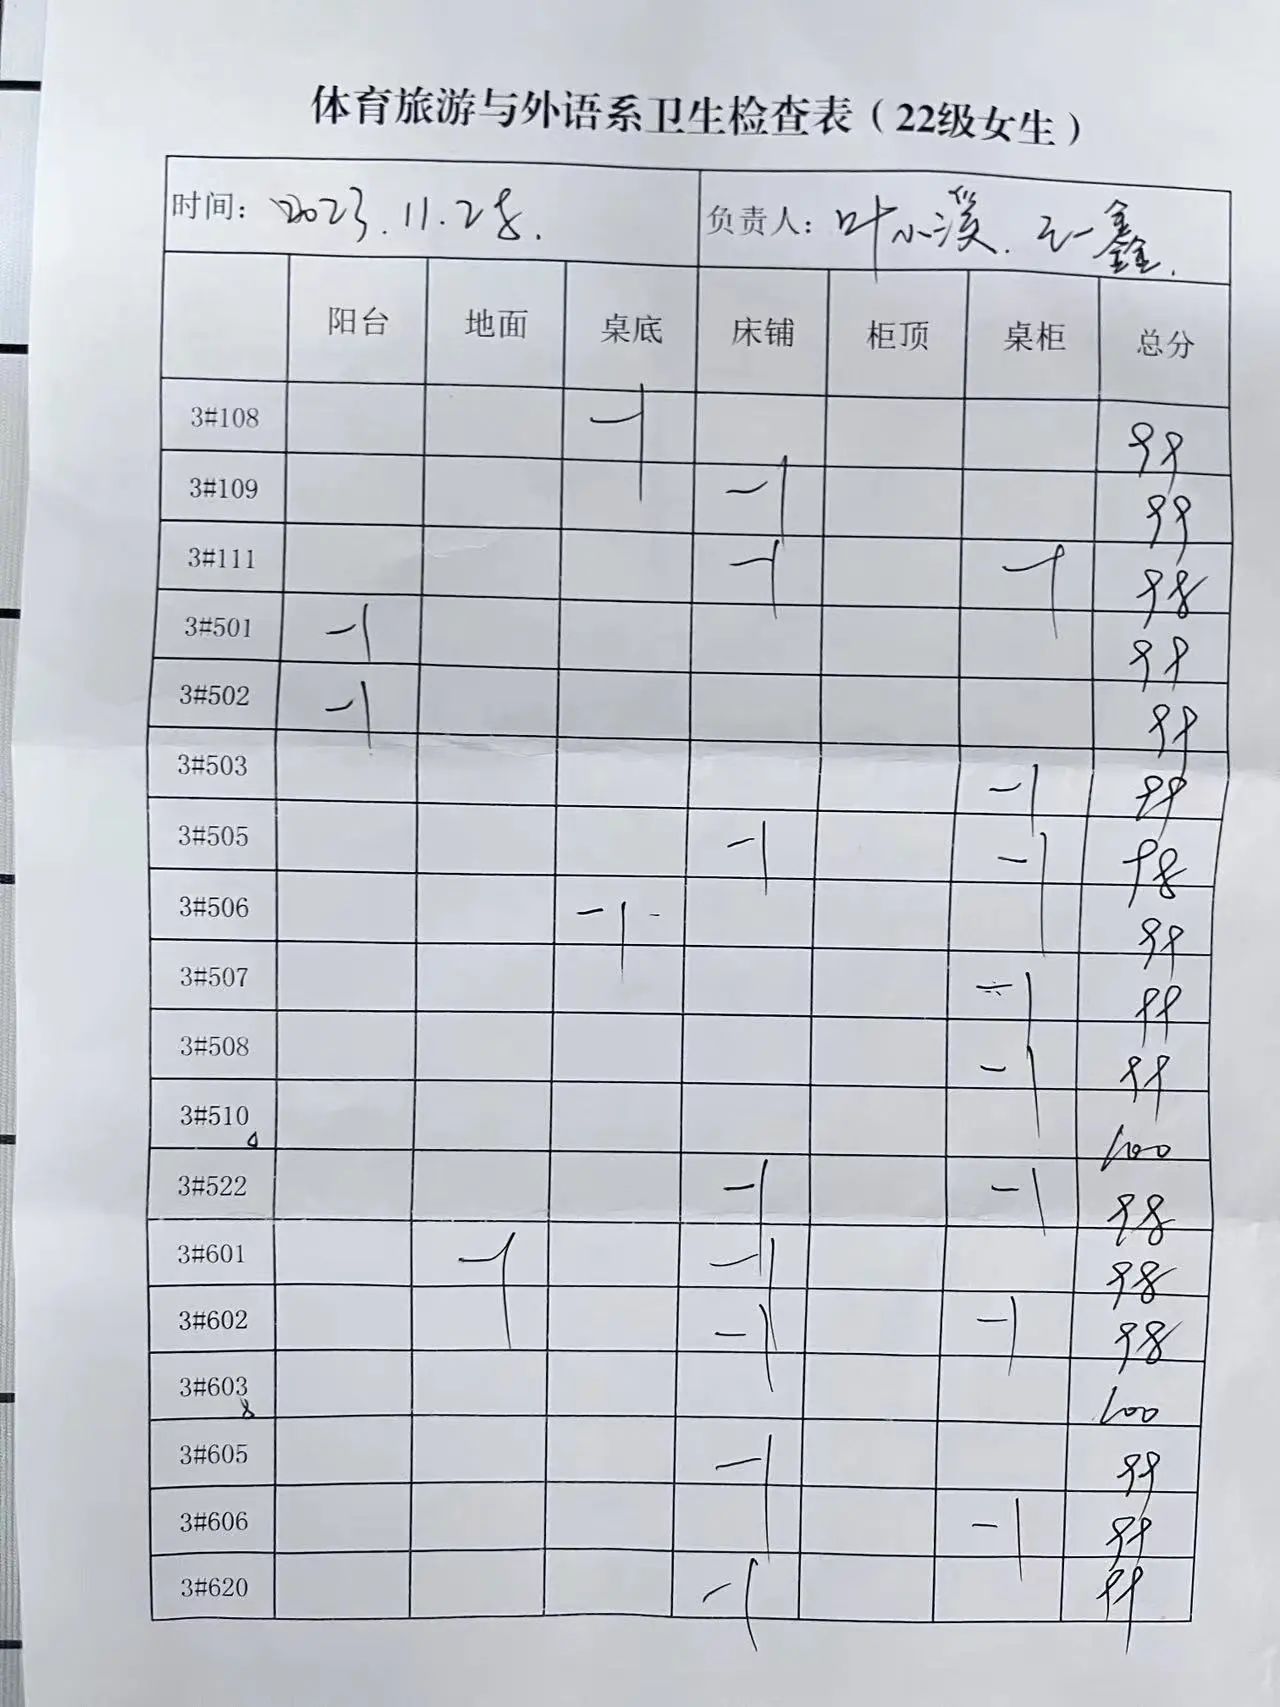 体育旅游与外语系卫生检查表（22级女生）
时间: 2023.11.28. 负责人: 叶小溪. 一鑫.
阳台 地面 桌底 床铺 柜顶 桌柜 总分
3#108 -1 99
3#109 -1 99
3#111 -1 -1 98
3#501 -1 99
3#502 -1 99
3#503 -1 99
3#505 -1 -1 98
3#506 -1 99
3#507 -1 99
3#508 -1 99
3#510 100
3#522 -1 -1 98
3#601 -1 -1 98
3#602 -1 -1 98
3#603 100
3#605 -1 99
3#606 -1 99
3#620 -1 99